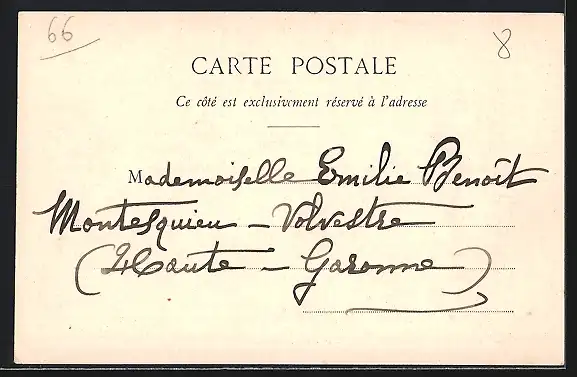 66
8
CARTE POSTALE
Ce côté est exclusivement réservé à l'adresse
Mademoiselle Emilie Benoît
Montesquieu - Volvestre
(Haute - Garonne)